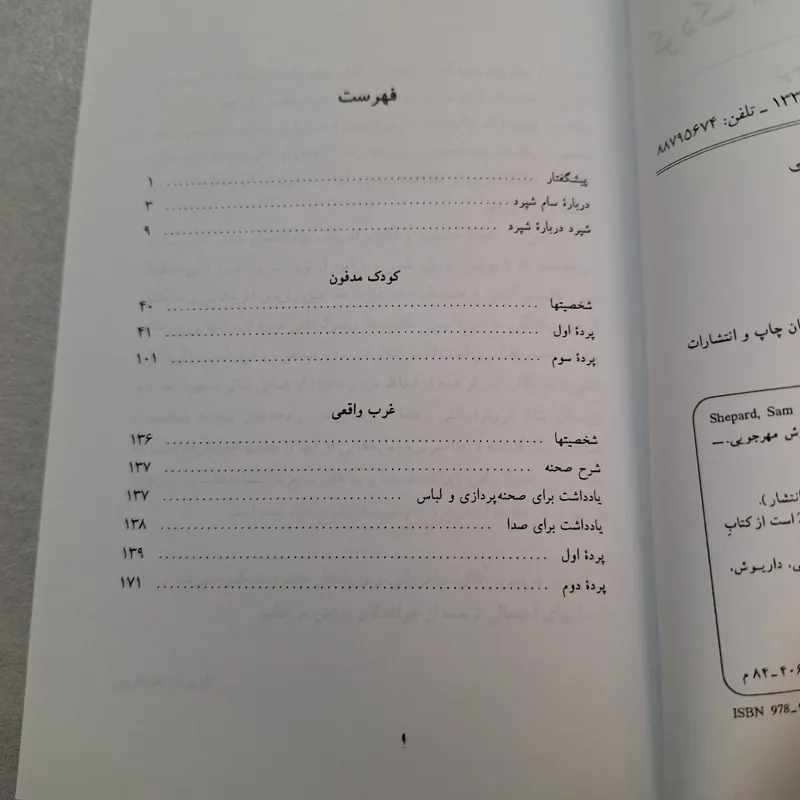 فهرست
پیشگفتار ........ ۱
دربارهٔ سام شپرد ........ ۳
شپرد دربارهٔ شپرد ........ ۹
کودک مدفون
شخصیتها ........ ۴۰
پردهٔ اول ........ ۴۱
پردهٔ سوم ........ ۱۰۱
غرب واقعی
شخصیتها ........ ۱۳۶
شرح صحنه ........ ۱۳۷
یادداشت برای صحنه‌پردازی و لباس ........ ۱۳۷
یادداشت برای صدا ........ ۱۳۸
پردهٔ اول ........ ۱۳۹
پردهٔ دوم ........ ۱۷۱
ـ تلفن: ۸۸۷۹۵۶۷۴
چاپ و انتشارات
Shepard, Sam
مهرجویی.ــ
است از کتاب
داریوش،
ـ۸۴ م
ISBN 978-